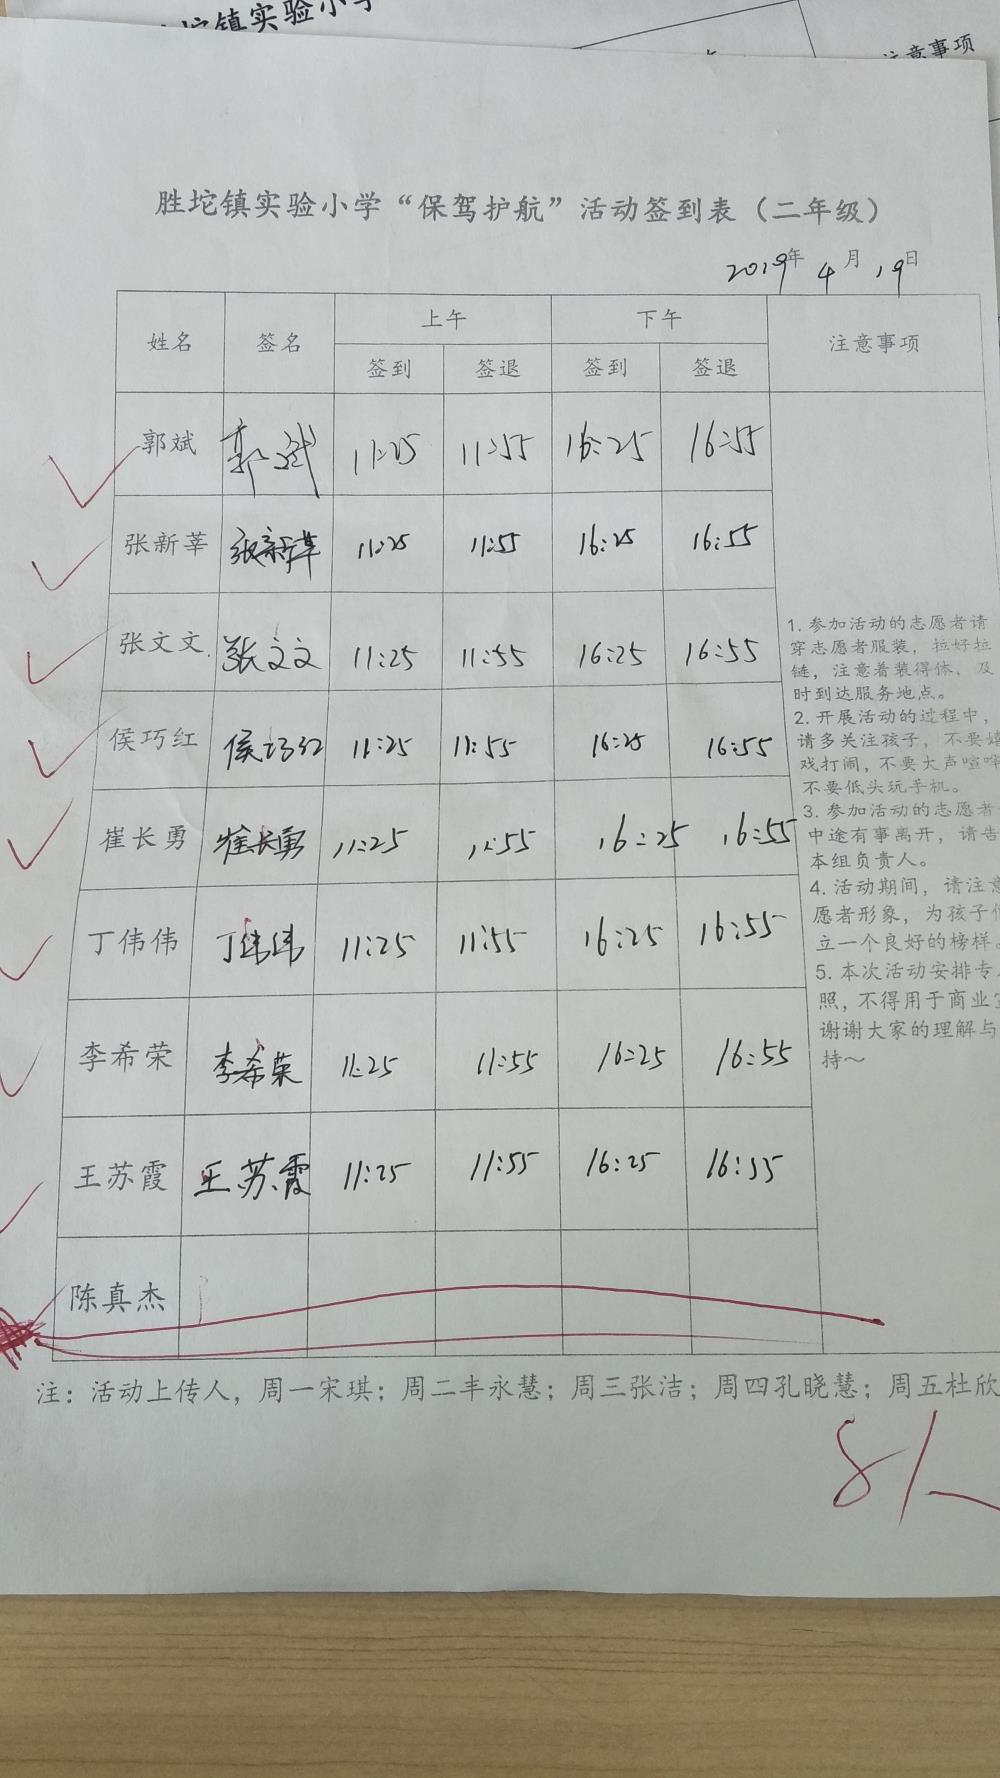 坨镇实验小学
注意事项
胜坨镇实验小学“保驾护航”活动签到表（二年级）
2019年 4月 19日
姓名 签名 上午 下午 注意事项
签到 签退 签到 签退
郭斌 郭斌 11:25 11:55 16:25 16:55
张新莘 张新莘 11:25 11:55 16:25 16:55
张文文 张文文 11:25 11:55 16:25 16:55
侯巧红 侯巧红 11:25 11:55 16:25 16:55
崔长勇 崔长勇 11:25 11:55 16:25 16:55
丁伟伟 丁伟伟 11:25 11:55 16:25 16:55
李希荣 李希荣 11:25 11:55 16:25 16:55
王苏霞 王苏霞 11:25 11:55 16:25 16:55
陈真杰
1. 参加活动的志愿者请
穿志愿者服装，拉好拉
链，注意着装得体，及
时到达服务地点。
2. 开展活动的过程中，
请多关注孩子，不要嬉
戏打闹，不要大声喧哗
不要低头玩手机。
3. 参加活动的志愿者
中途有事离开，请告
本组负责人。
4. 活动期间，请注意
愿者形象，为孩子们
立一个良好的榜样。
5. 本次活动安排专
照，不得用于商业
谢谢大家的理解与
持～
注：活动上传人，周一宋琪；周二丰永慧；周三张洁；周四孔晓慧；周五杜欣
8人